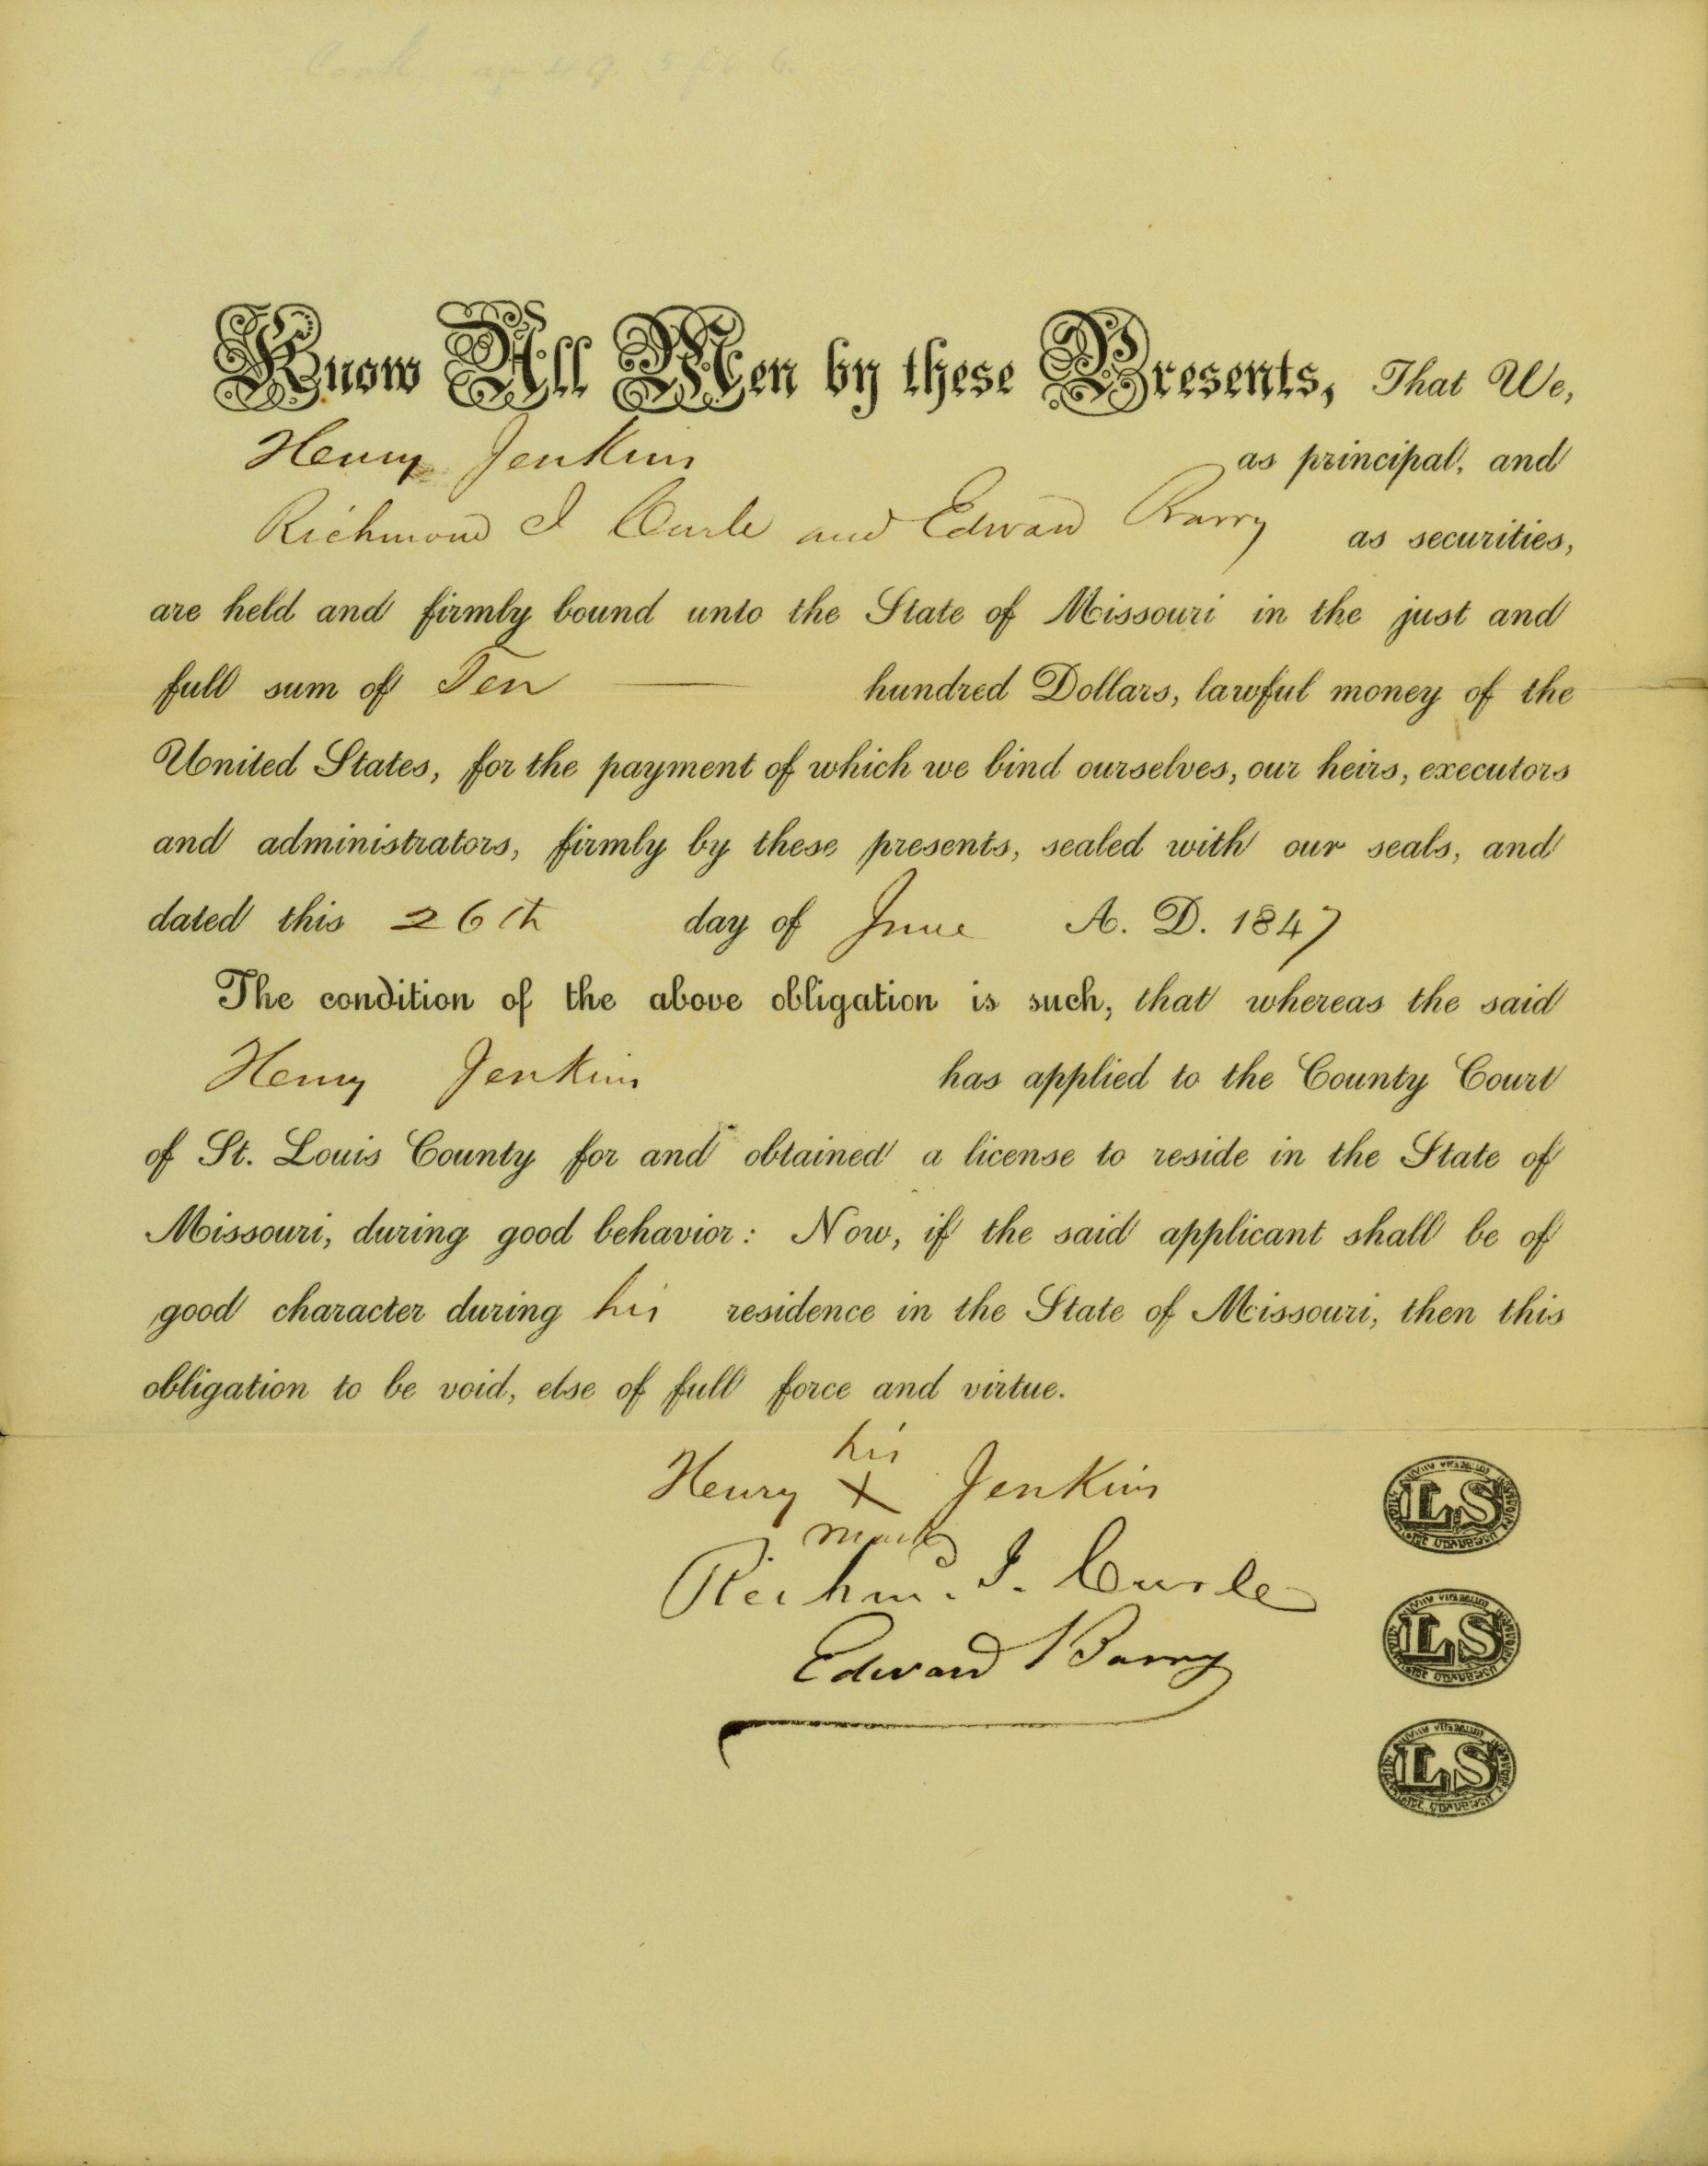 Know All Men by these Presents, That We,
Henry Jenkins as principal, and
Richmond J Curle and Edward Barry as securities,
are held and firmly bound unto the State of Missouri in the just and
full sum of Ten — hundred Dollars, lawful money of the
United States, for the payment of which we bind ourselves, our heirs, executors
and administrators, firmly by these presents, sealed with our seals, and
dated this 26th day of June A. D. 1847
The condition of the above obligation is such, that whereas the said
Henry Jenkins has applied to the County Court
of St. Louis County for and obtained a license to reside in the State of
Missouri, during good behavior: Now, if the said applicant shall be of
good character during his residence in the State of Missouri, then this
obligation to be void, else of full force and virtue.
his
Henry X Jenkins LS
mark
Richmd. J. Curle LS
Edward Barry LS